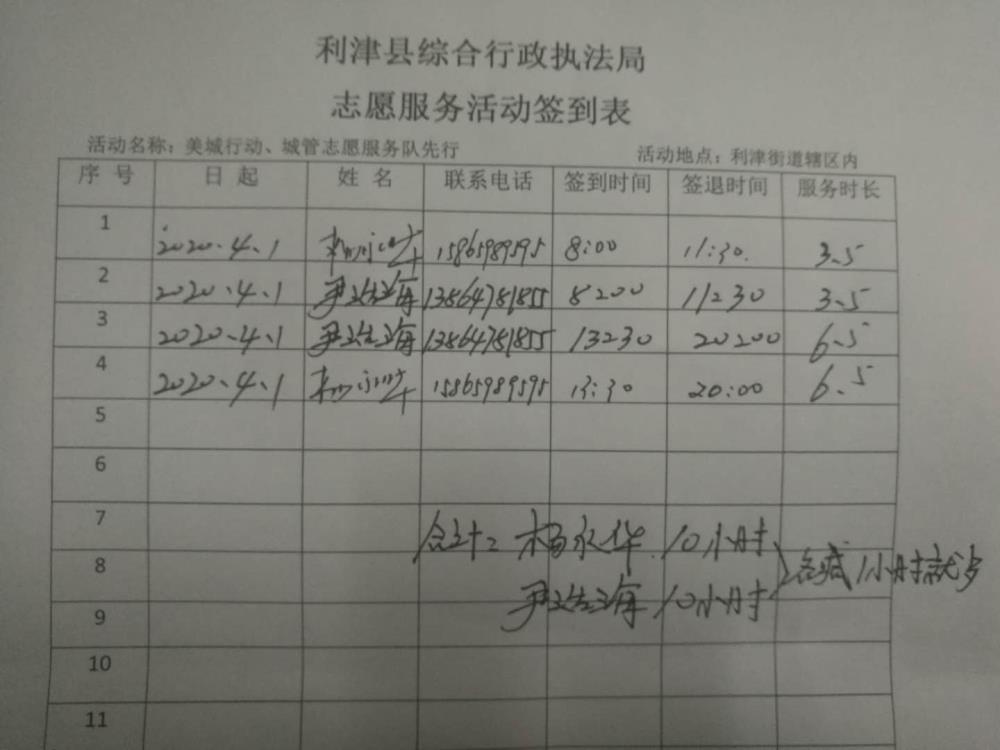 利津县综合行政执法局
志愿服务活动签到表
活动名称：美城行动、城管志愿服务队先行 活动地点：利津街道辖区内
序号 日起 姓名 联系电话 签到时间 签退时间 服务时长
1 2020.4.1 杨永华 15865989595 8:00 11:30. 3.5
2 2020.4.1 尹海 13864781855 8:00 11:30 3.5
3 2020.4.1 尹海 13864781855 13:30 20:00 6.5
4 2020.4.1 杨永华 15865989595 13:30 20:00 6.5
5
6
7 合计: 杨永华 10小时
8 减1小时就
尹海 10小时
9
10
11